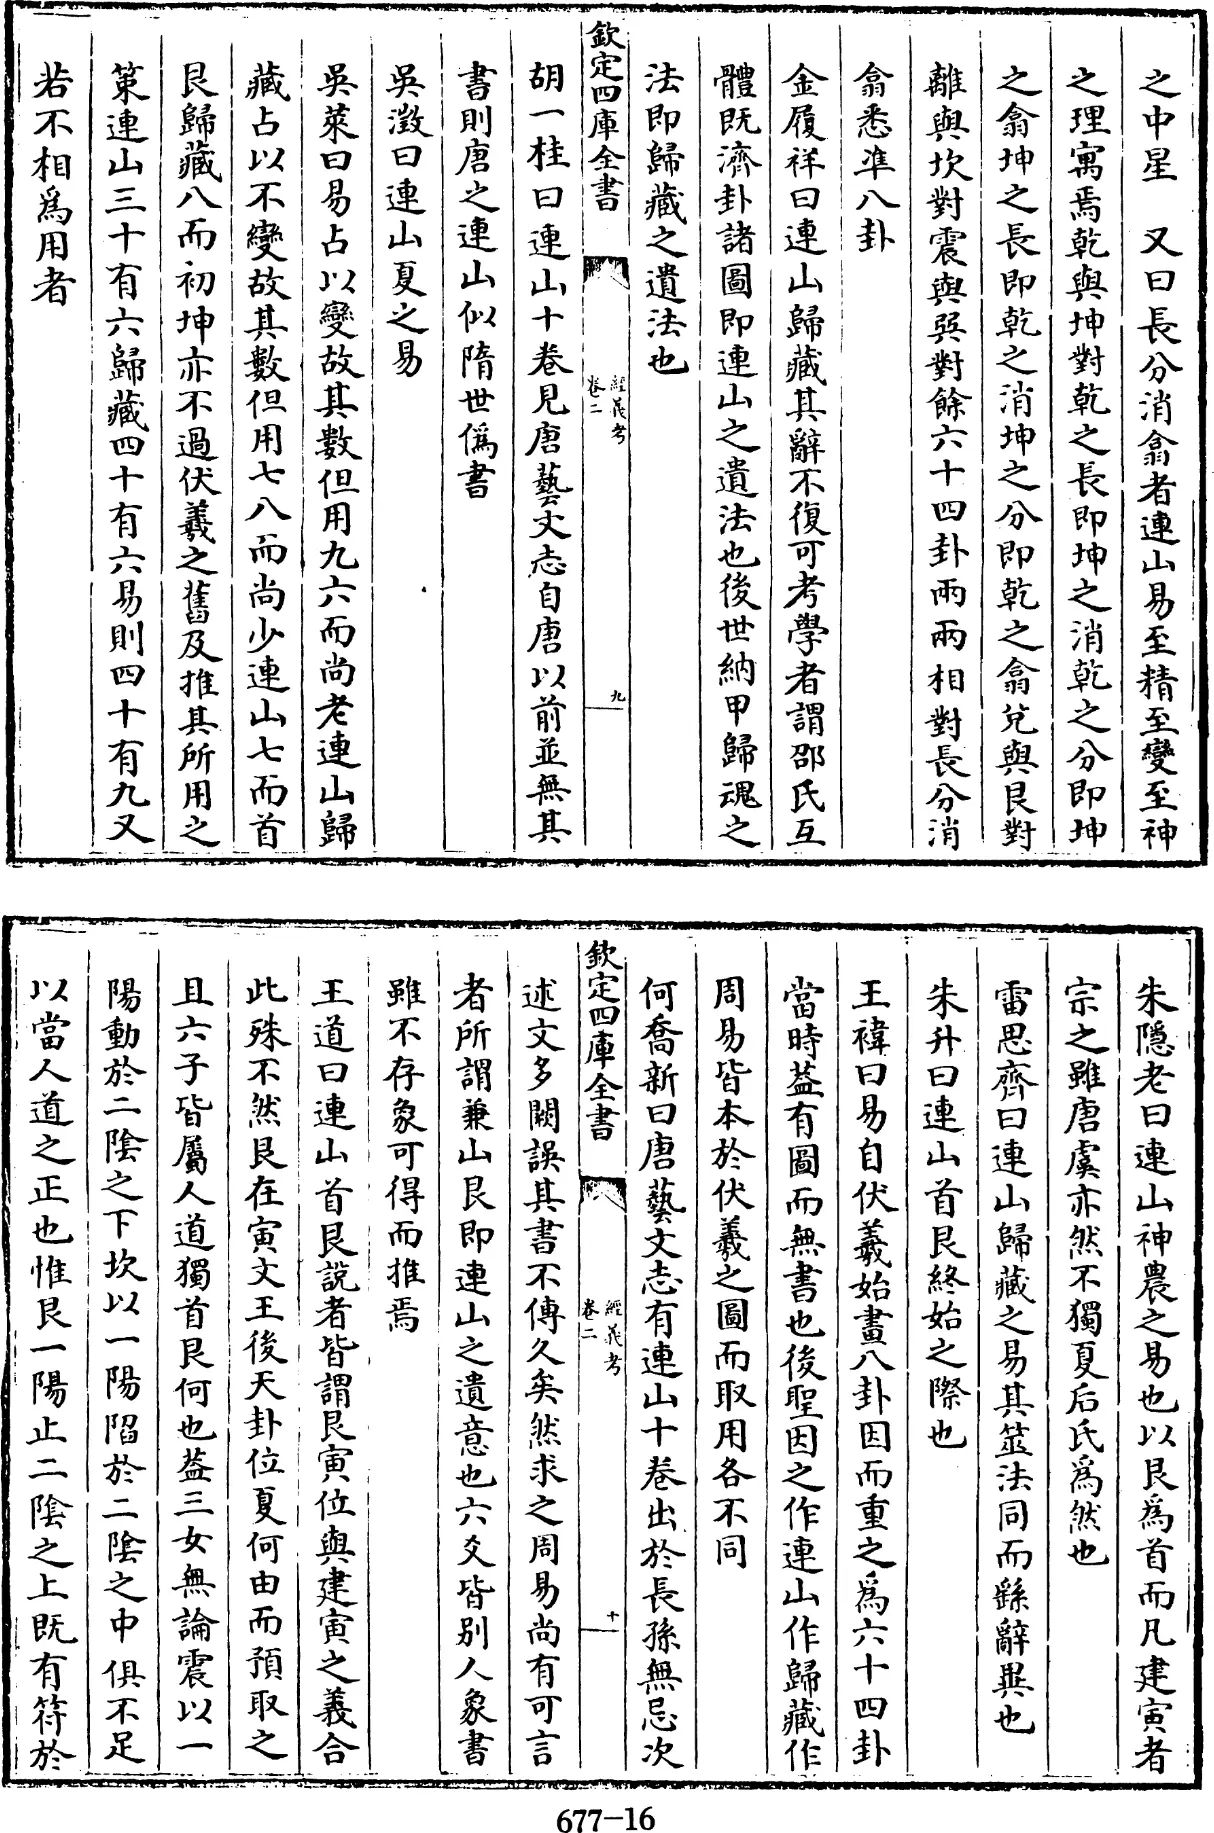 之中星　又曰長分消翕者連山易至精至變至神
之理寓焉乾與坤對乾之長即坤之消乾之分即坤
之翕坤之長即乾之消坤之分即乾之翕兌與艮對
離與坎對震與巽對餘六十四卦兩兩相對長分消
翕悉準八卦
金履祥曰連山歸藏其辭不復可考學者謂邵氏互
體既濟卦諸圖即連山之遺法也後世納甲歸魂之
法即歸藏之遺法也
欽定四庫全書
經義考
卷二
九
胡一桂曰連山十卷見唐藝文志自唐以前並無其
書則唐之連山似隋世偽書
吳澂曰連山夏之易
吳萊曰易占以變故其數但用九六而尚老連山歸
藏占以不變故其數但用七八而尚少連山七而首
艮歸藏八而初坤亦不過伏羲之舊及推其所用之
策連山三十有六歸藏四十有六易則四十有九又
若不相為用者
朱隱老曰連山神農之易也以艮為首而凡建寅者
宗之雖唐虞亦然不獨夏后氏為然也
雷思齊曰連山歸藏之易其筮法同而繇辭異也
朱升曰連山首艮終始之際也
王禕曰易自伏羲始畫八卦因而重之為六十四卦
當時蓋有圖而無書也後聖因之作連山作歸藏作
周易皆本於伏羲之圖而取用各不同
何喬新曰唐藝文志有連山十卷出於長孫無忌次
欽定四庫全書
經義考
卷二
十
述文多闕誤其書不傳久矣然求之周易尚有可言
者所謂兼山艮即連山之遺意也六爻皆別人象書
雖不存象可得而推焉
王道曰連山首艮說者皆謂艮寅位與建寅之義合
此殊不然艮在寅文王後天卦位夏何由而預取之
且六子皆屬人道獨首艮何也蓋三女無論震以一
陽動於二陰之下坎以一陽陷於二陰之中俱不足
以當人道之正也惟艮一陽止二陰之上既有符於
677-16